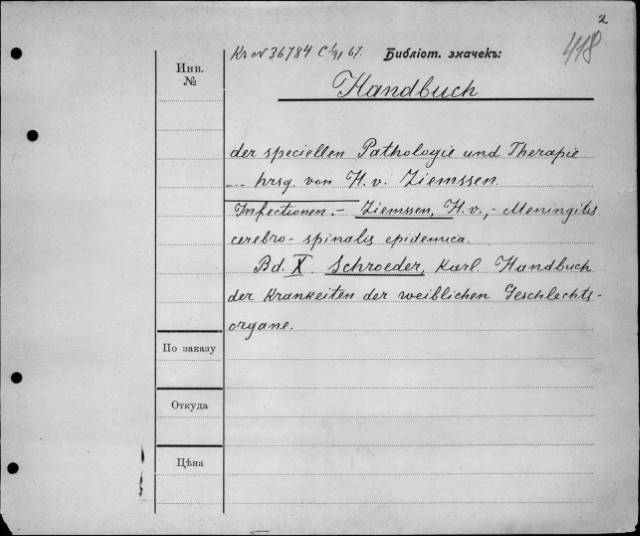 2
Kr N 36784 C 1/31 67.
Библіот. значекъ:
418
Инв.
№
Handbuch
der speciellen Pathologie und Therapie
... hrsg. von H. v. Ziemssen.
Infectionen. - Ziemssen, H. v., - Meningitis
cerebro-spinalis epidemica.
Bd. X. Schroeder, Karl. Handbuch
der Krankeiten der weiblichen Geschlechts-
organe.
По заказу
Откуда
Цѣна